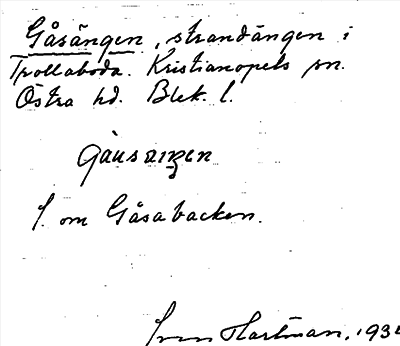 Gåsängen, strandängen i
Trollaboda. Kristianopels sn.
Östra hd. Blek. l.
S. om Gåsabacken.
Sven Hartman,